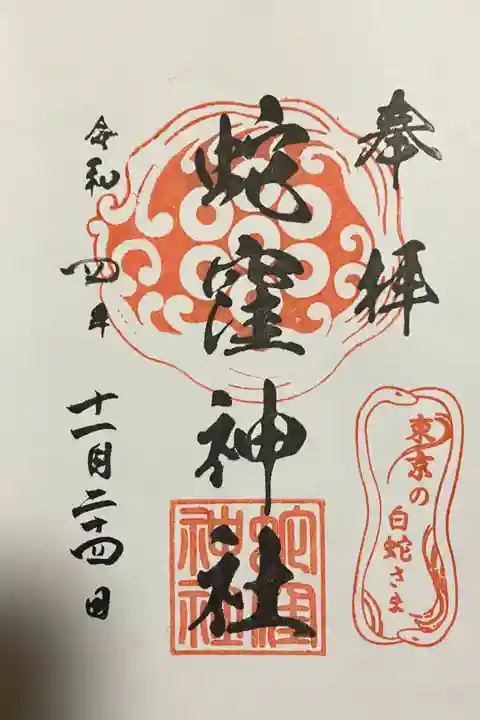 奉拝
東京の
白蛇さま
蛇窪神社
蛇窪
神社
令和四年
十一月二十四日